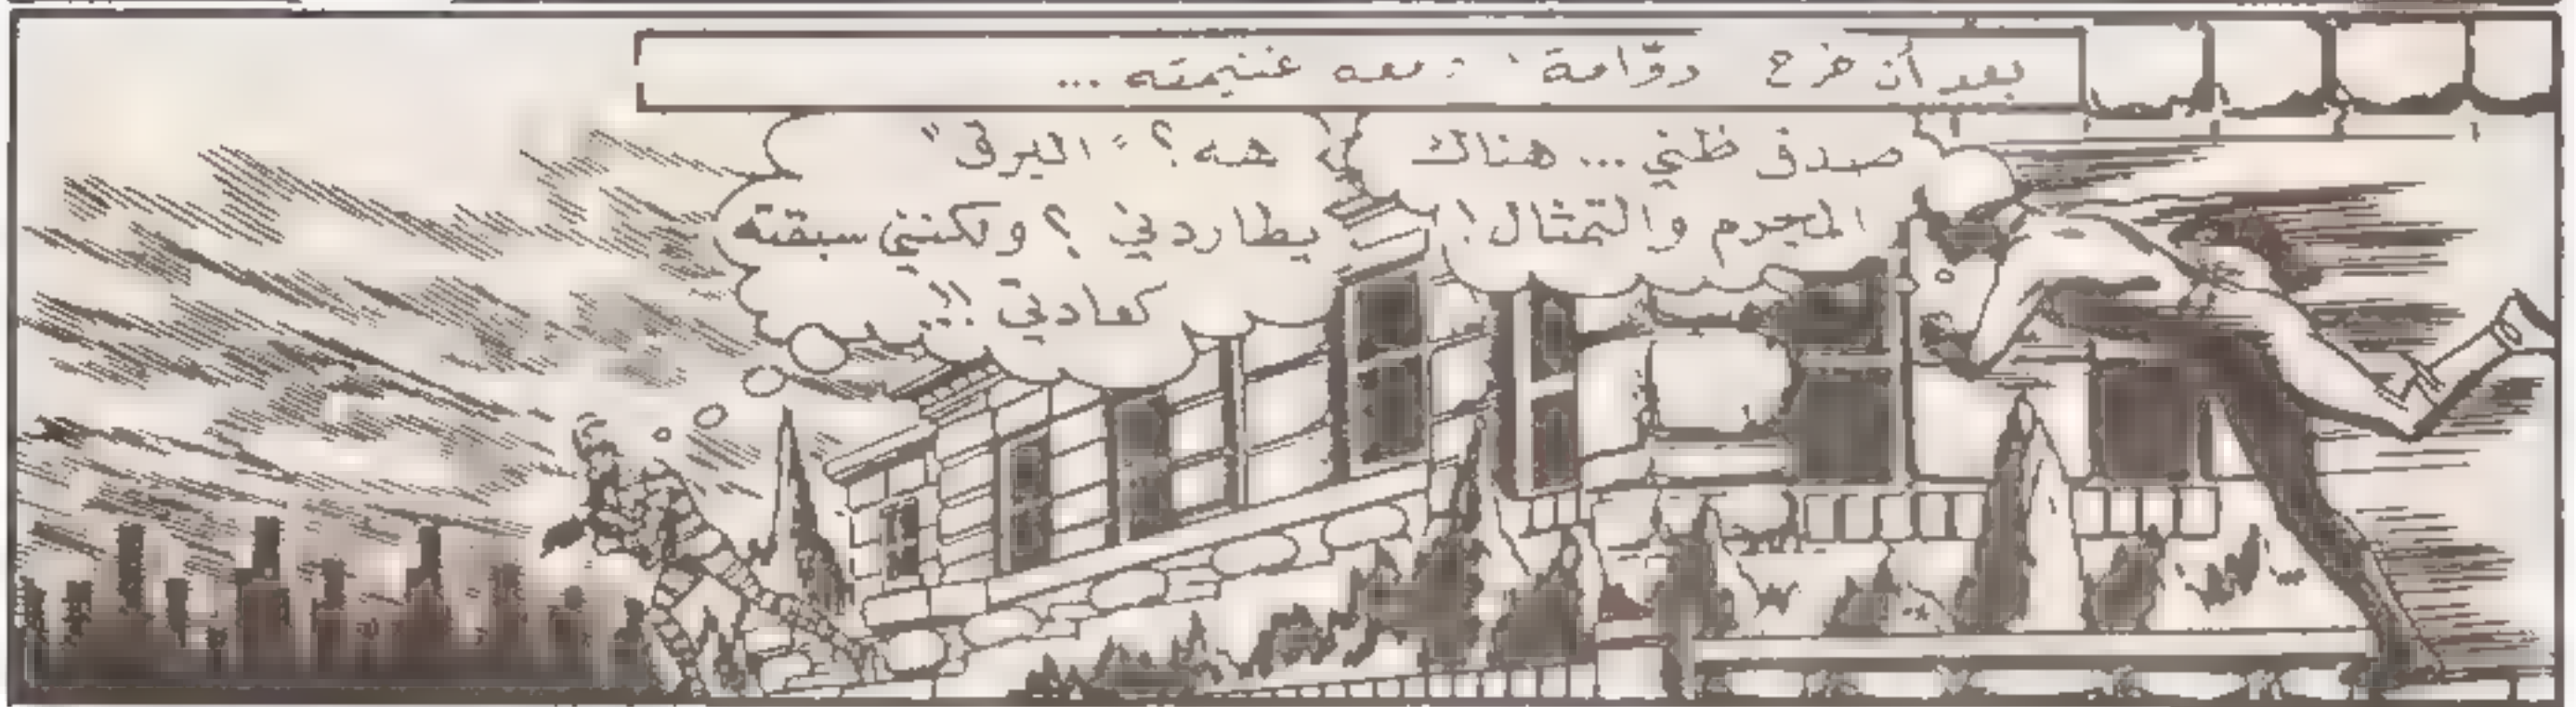 بعد أن خرج دوّامة معه غنيمته ...
صدق ظني ... هناك
المجرم والتمثال !
هه ؟ "البرق"
يطاردني ؟ ولكنني سبقته
كعادتي !!